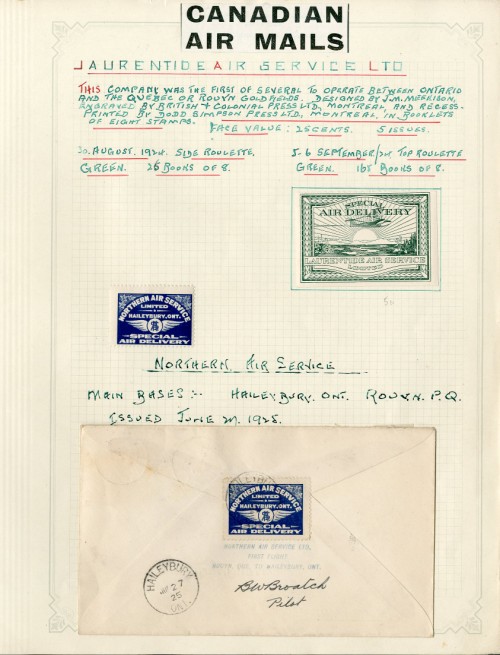 CANADIAN
AIR MAILS
LAURENTIDE AIR SERVICE LTD
THIS COMPANY WAS THE FIRST OF SEVERAL TO OPERATE BETWEEN ONTARIO
AND THE QUEBEC OR ROUYN GOLDFIELDS. DESIGNED BY J.M.
ENGRAVED BY BRITISH & COLONIAL PRESS LTD, MONTREAL, AND RECESS-
PRINTED BY DODD SIMPSON PRESS LTD, MONTREAL, IN BOOKLETS
OF EIGHT STAMPS. FACE VALUE: 25 CENTS. 5 ISSUES.
30 AUGUST, 1924. SIDE ROULETTE.
GREEN. BOOKS OF 8.
5-6 SEPTEMBER/24 TOP ROULETTE
GREEN. BOOKS OF 8.
SPECIAL
AIR DELIVERY
LAURENTIDE AIR SERVICE
LIMITED
NORTHERN AIR SERVICE
LIMITED
HAILEYBURY, ONT.
25
SPECIAL
AIR DELIVERY
NORTHERN AIR SERVICE
MAIN BASES :- HAILEYBURY. ONT. ROUYN. P.Q.
ISSUED JUNE 1925.
NORTHERN AIR SERVICE
LIMITED
HAILEYBURY, ONT.
25
SPECIAL
AIR DELIVERY
NORTHERN AIR SERVICE LTD.
FIRST FLIGHT
ROUYN, QUE. TO HAILEYBURY, ONT.
BW Broatch
Pilot
HAILEYBURY
27
25
ONT.